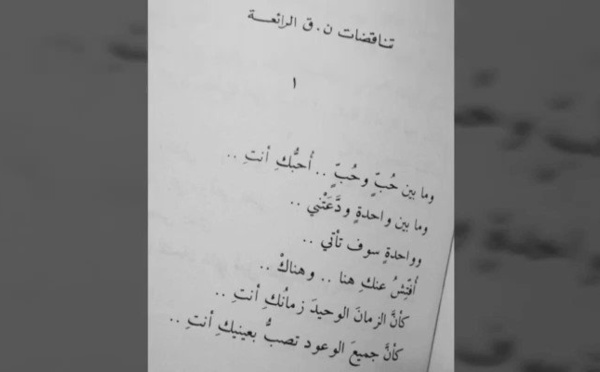 تناقضات ن . ق الرائعــة
١
وما بين حُبٍّ وحُبٍّ .. أُحبُّكِ أنتِ ..
وما بين واحدةٍ ودَّعَتْني ..
وواحدةٍ سوف تأتي ..
أُفتِّشُ عنكِ هنا .. وهناكْ ..
كأنَّ الزمانَ الوحيدَ زمانُكِ أنتِ ..
كأنَّ جميعَ الوعود تصبُّ بعينيكِ أنتِ ..